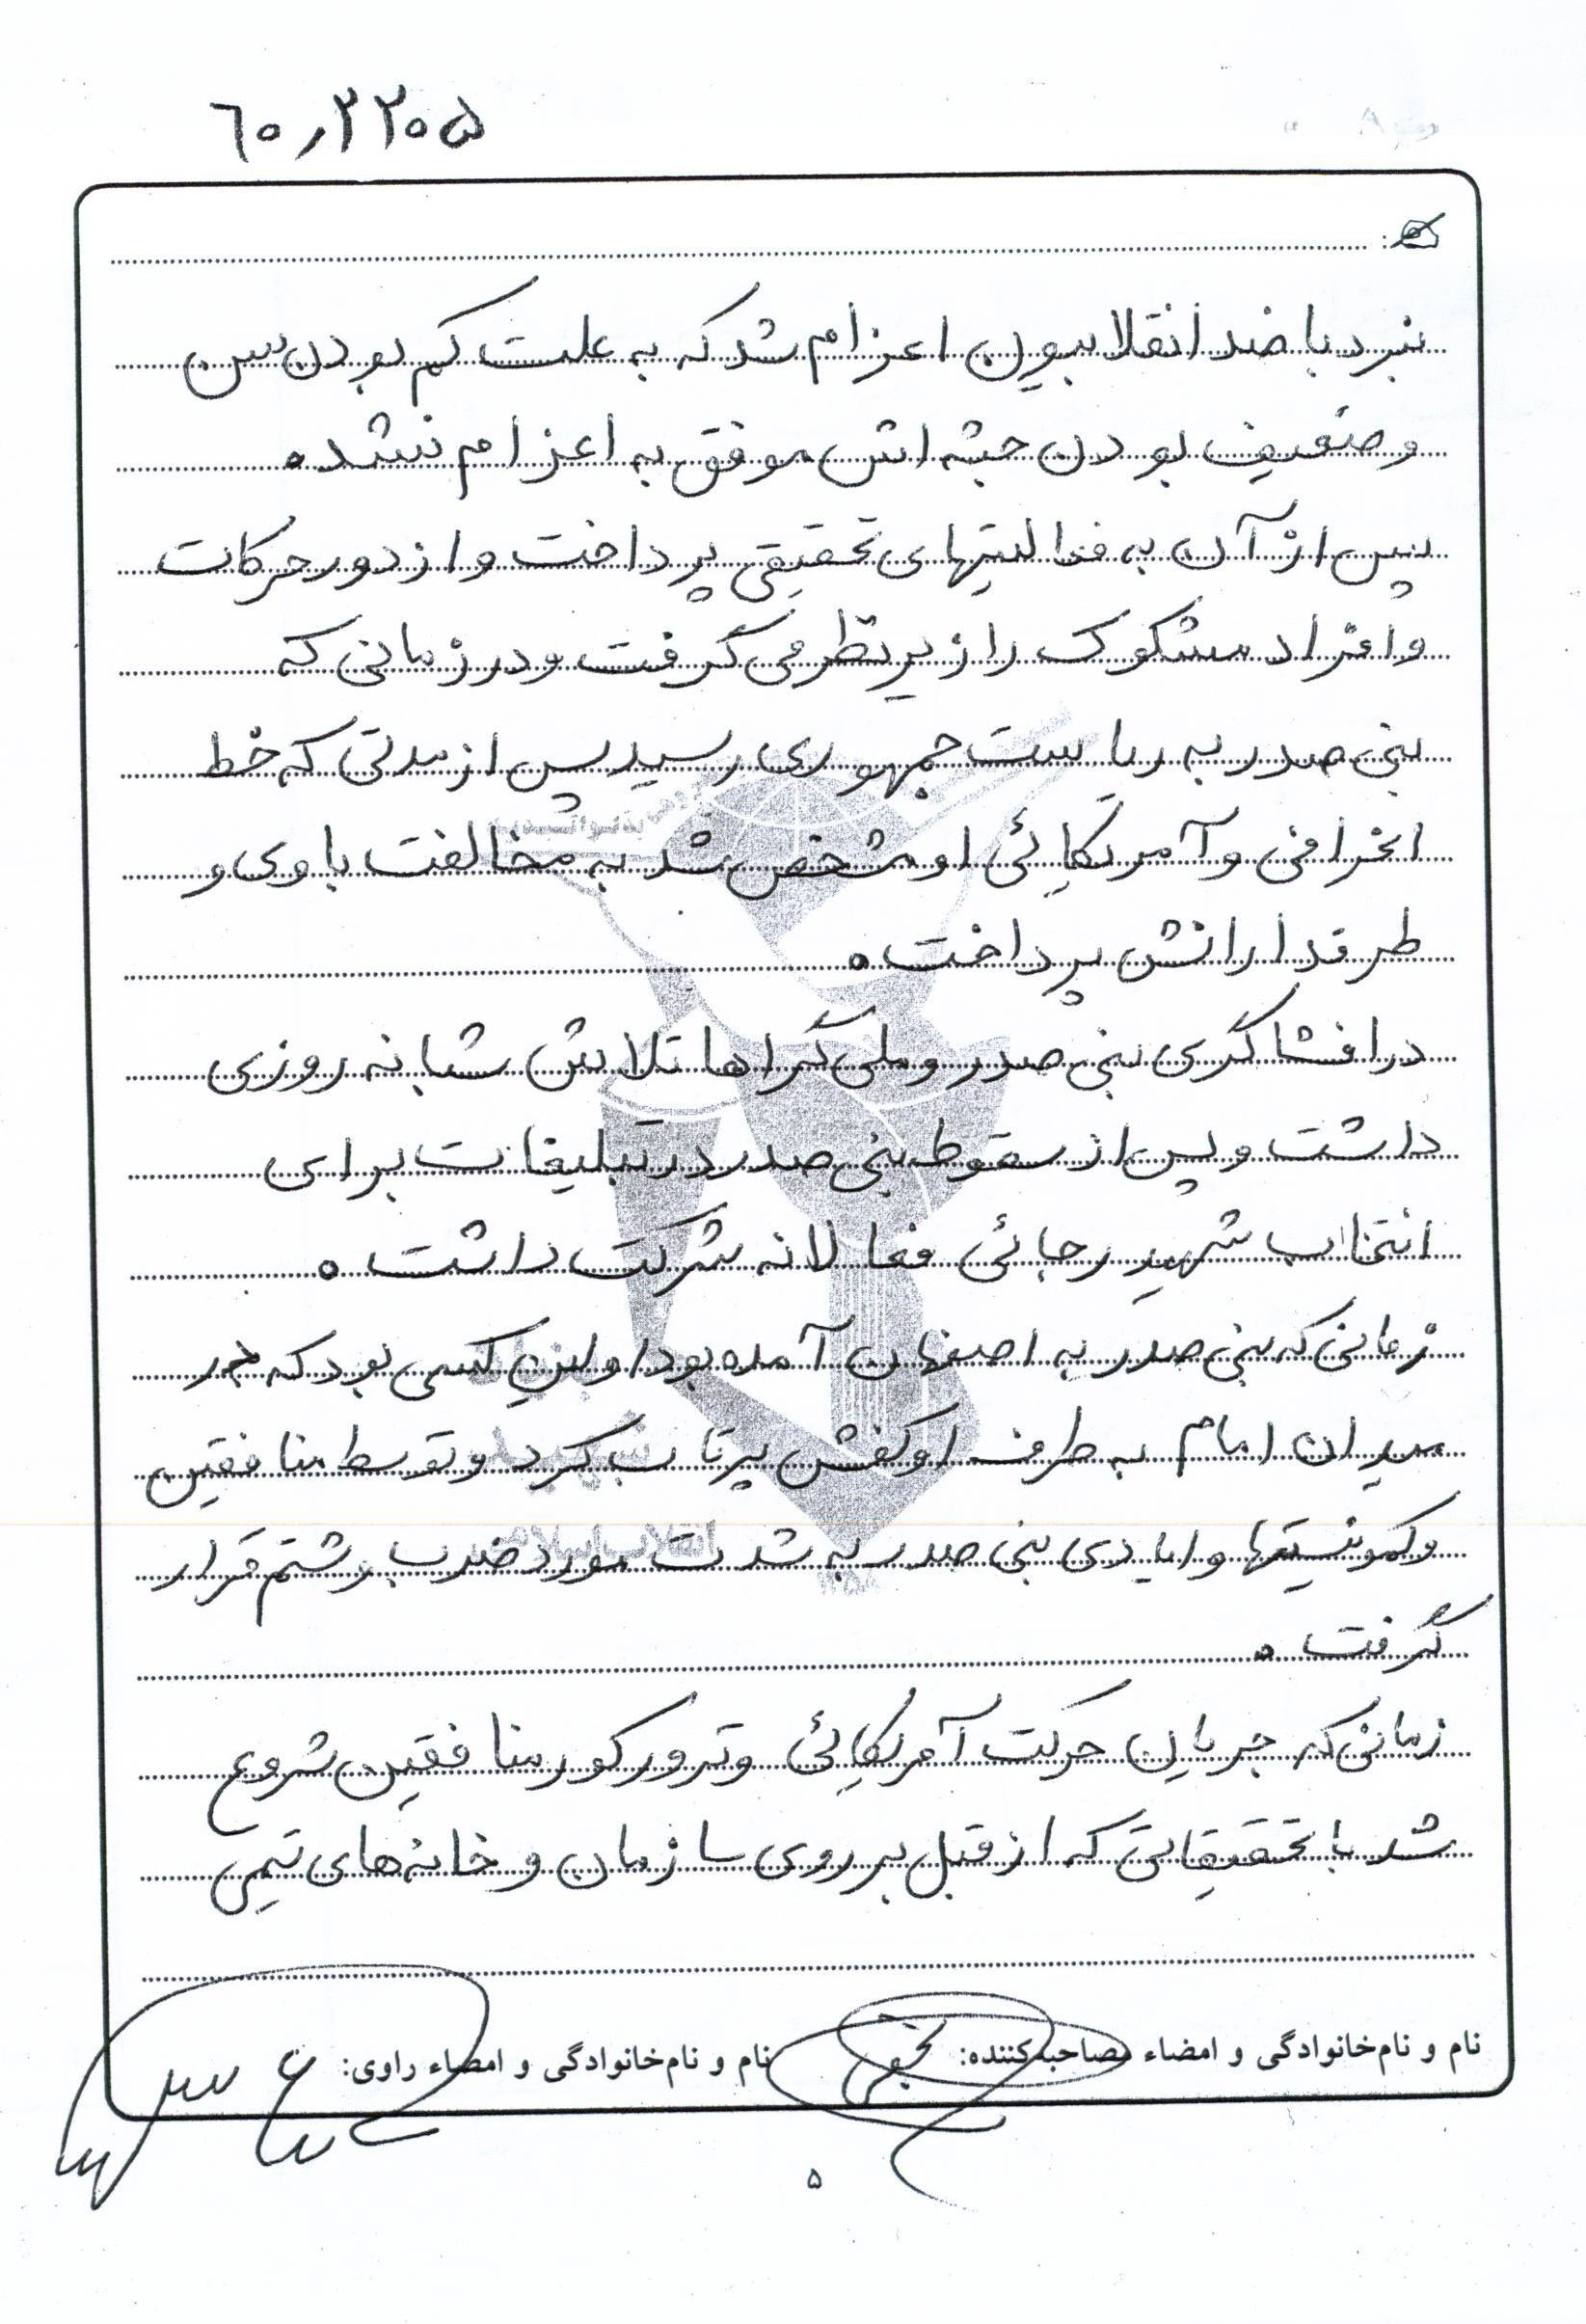 ۶۰٫۲۲۰۵
نبرد با ضد انقلابیون اعزام شد که به علت کم بودن سن
و ضعیف بودن جثه اش موفق به اعزام نشد.
پس از آن به فعالیتهای تحقیقی پرداخت و از دور حرکات
و افراد مشکوک را زیر نظر می گرفت و در زمانی که
بنی صدر به ریاست جمهوری رسید پس از مدتی که خط
انحرافی و آمریکائی او مشخص شد به مخالفت با وی و
طرفدارانش پرداخت.
در افشاگری بنی صدر و ملی گراها تلاش شبانه روزی
داشت و پس از سقوط بنی صدر در تبلیغات برای
انتخاب شهید رجائی فعالانه شرکت داشت.
زمانی که بنی صدر به اصفهان آمده بود اولین کسی بود که در
میدان امام به طرف او کفش پرتاب کرد و توسط منافقین
و کمونیستها و ایادی بنی صدر به شدت مورد ضرب و شتم قرار
گرفت.
زمانی که جریان حرکت آمریکائی و ترور کور منافقین شروع
شد با تحقیقاتی که از قبل بر روی سازمان و خانه های تیمی
نام و نام‌خانوادگی و امضاء مصاحبه‌کننده: نام و نام‌خانوادگی و امضاء راوی:
۵